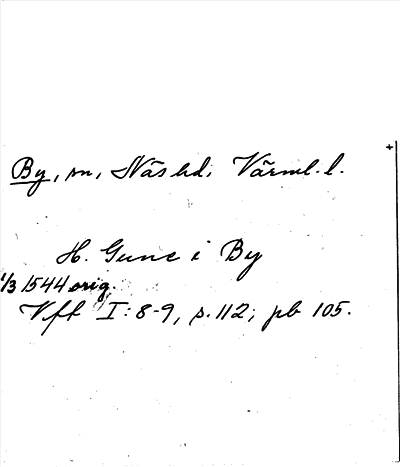 By, sn, Näs hd, Värml. l.
H. Gunc i By
1/3 1544 orig.
Vft I: 8-9, s. 112; pb 105.